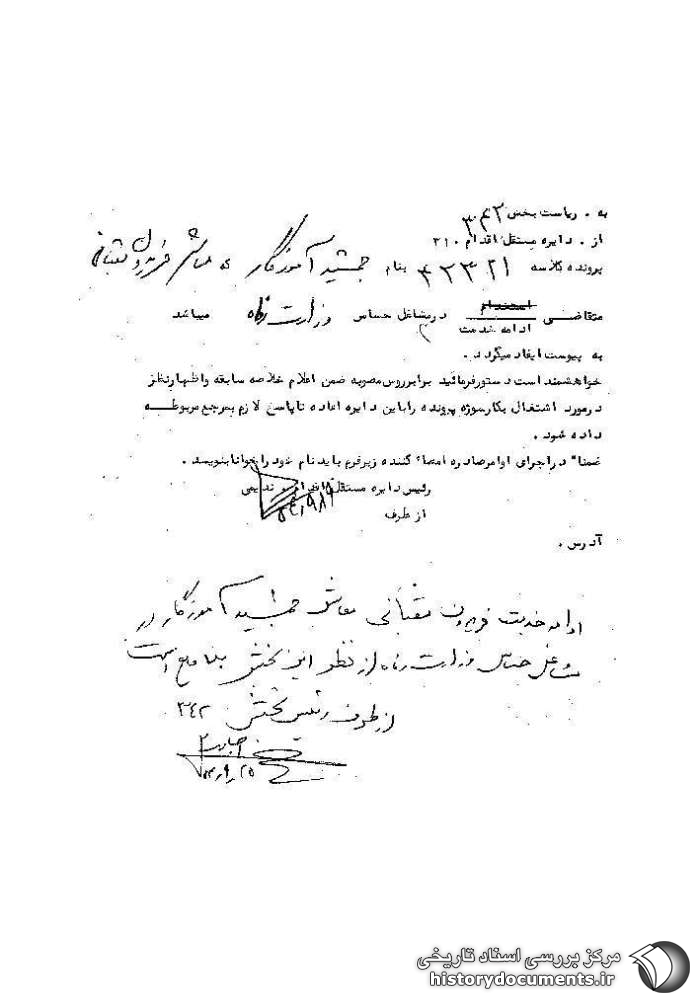 به ، ریاست بخش ۳۴۲
از ، دایره مستقل اقدام ۲۱۰
پرونده بکلاسه ۴۲۳۲۱ بنام جمشید آموزگار معاش فریدون مقبانی
متقاضی استخدام در مشاغل حساس وزارت رفاه میباشد
ادامه خدمت
به پیوست ایفاد میگردد .
خواهشمند است دستور فرمائید برابر روش مصوبه ضمن اعلام خلاصه سابقه و اظهارنظر
در مورد اشتغال بکار سوژه پرونده را باین دایره اعاده تا پاسخ لازم بمرجع مربوطه
داده شود .
ضمنا" در اجرای اوامر صادره امضاء کننده زیر فرم باید نام خود را خوانا بنویسد .
رئیس دایره مستقل اقدام ندیمی
از طرف
آدرس .
ادامه خدمت فریدون مقبانی معاش جمشید آموزگار در
مشاغل حساس وزارت رفاه از نظر این بخش بلامانع است
از طرف رئیس بخش ۳۴۲
مرکز بررسی اسناد تاریخی
historydocuments.ir